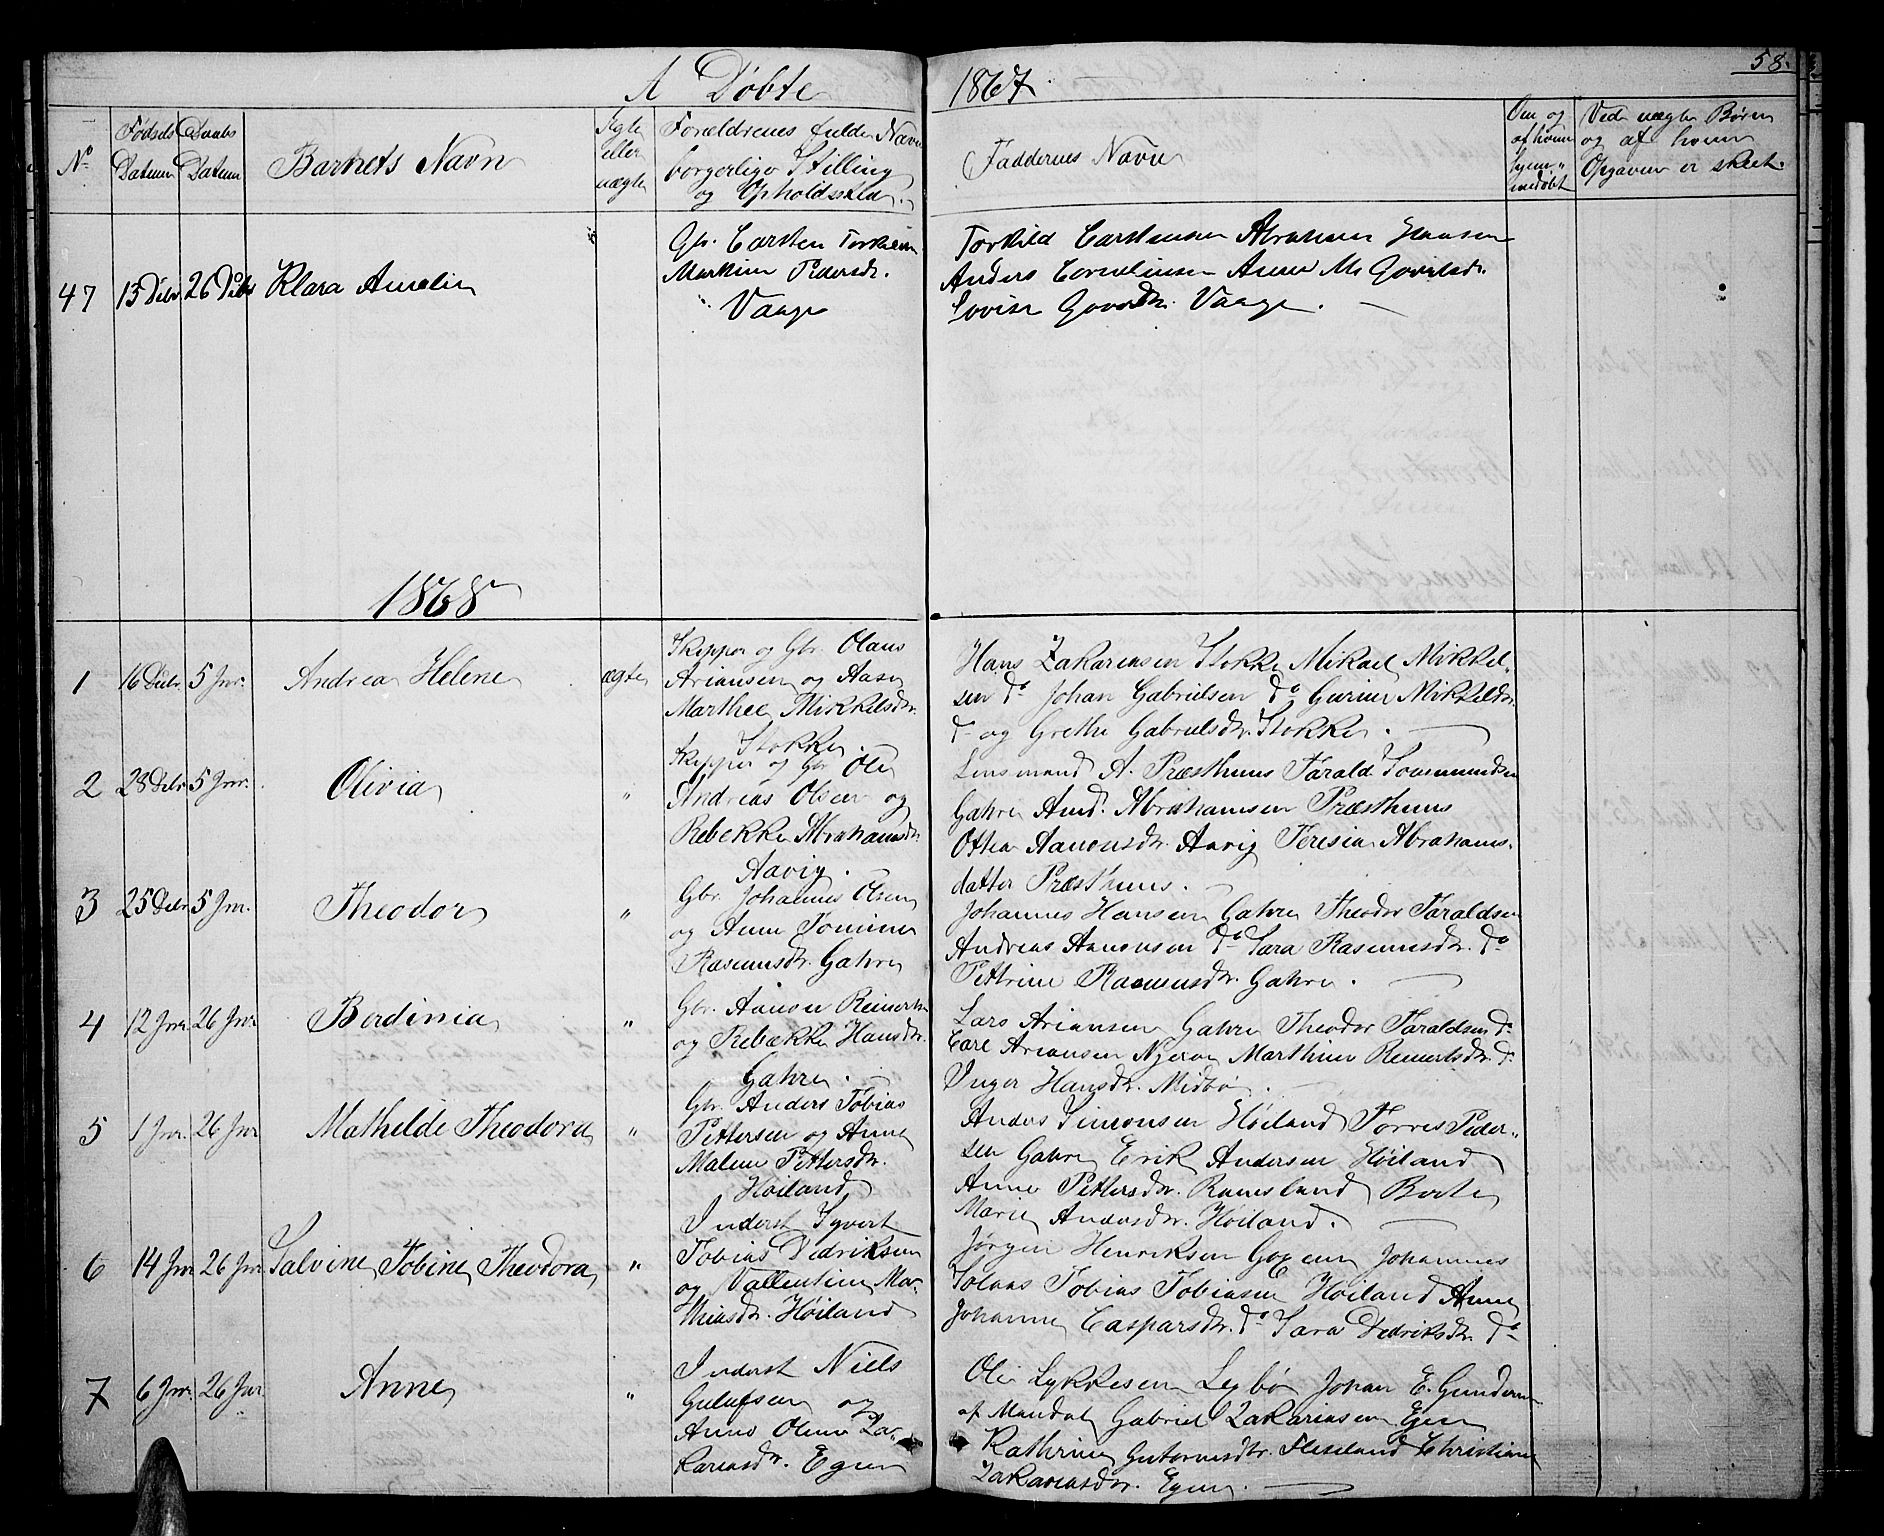 A Döbte 1867. 58.
No. Fødsels Datum Daabs Datum Barnets Navn Ægte eller uægte Forældrenes fulde Navn borgerlige Stilling og Opholdssted. Faddernes Navne Om og af hvem hjemmedøbt Ved uægte Børn og af hvem Opgaven er skeet.
47 15 Debr 26 Debr Klara Amalie
Gbr. Carsten Torkilsen
Marthine Pedersdr.
Vaage
Torkild Carstensen Abraham Hansen
Anders Corneliussen Anne M. Govertsdr.
Lovise Govertsdr. Vaage.
1868
1 16 Debr. 5 Jnr. Andrea Helene ægte
Skipper og Gbr. Olaus
Ariansen og Aase
Marthee Mikkelsdr.
Stokke.
Hans Zakariasen Stokke Mikael Mikkel-
sen do Johan Gabrielsen do Gurine Mikkelsdr.
do og Grethe Gabrielsdr. Stokke.
2 28 Debr 5 Jnr. Olivia "
Skipper og Gbr. Ole
Andreas Olsen og
Rebekke Abrahamsdr
Aavig.
Lensmand A. Præsthuus Tarald Tommundsen
Gahre Amd. Abrahamsen Præsthuus
Othea Aanensdr. Aavig Teresia Abrahams-
datter Præsthuus.
3 25 Debr 5 Jnr. Theodor "
Gbr. Johannes Olsen
og Anne Tomine
Rasmusdr. Gahre
Johannes Hansen Gahre Theodor Taraldsen
Andreas Aanonsen do Sara Rasmusdr. do
Pettrine Rasmusdr. Gahre.
4 12 Jnr. 26 Jnr. Berdinia "
Gbr. Aanon Reinertsen
og Rebække Hansdr.
Gahre.
Lars Ariansen Gahre Theodor Taraldsen do
Carl Ariansen Marthine Reinertsdr. do
Inger Hansdr. Midbø.
5 1 Jnr. 26 Jnr Mathilde Theodora "
Gbr. Anders Tobias
Pettersen og Anne
Malene Pettersdr.
Høiland
Anders Simonsen Høiland Torres Peder-
sen Gahre Erik Andersen Høiland
Anne Pettersdr. Ramsland Berte
Marie Andersdr. Høiland.
6 14 Jnr 26 Jnr Salvine Tobine Theodora "
Inderst Syvert
Tobias Didriksen
og Vallentine Ma-
thiasdr. Høiland
Jørgen Henriksen Johannes
Tobias Tobiasen Høiland Anne
Johanne Caspersdr. do Sara Didriksdr. do
7 6 Jnr. 26 Jnr. Anne "
Inderst Niels
Gulufsen og
Anne Oline Za-
kariasdr. Egen
Ole Lykkesen Legbø Johan E. Gundersen
af Mandal Gabriel Zakariasen Egen
Kathrine Gutormsdtr. Fleseland Christiane
Zakariasdr. Egen.